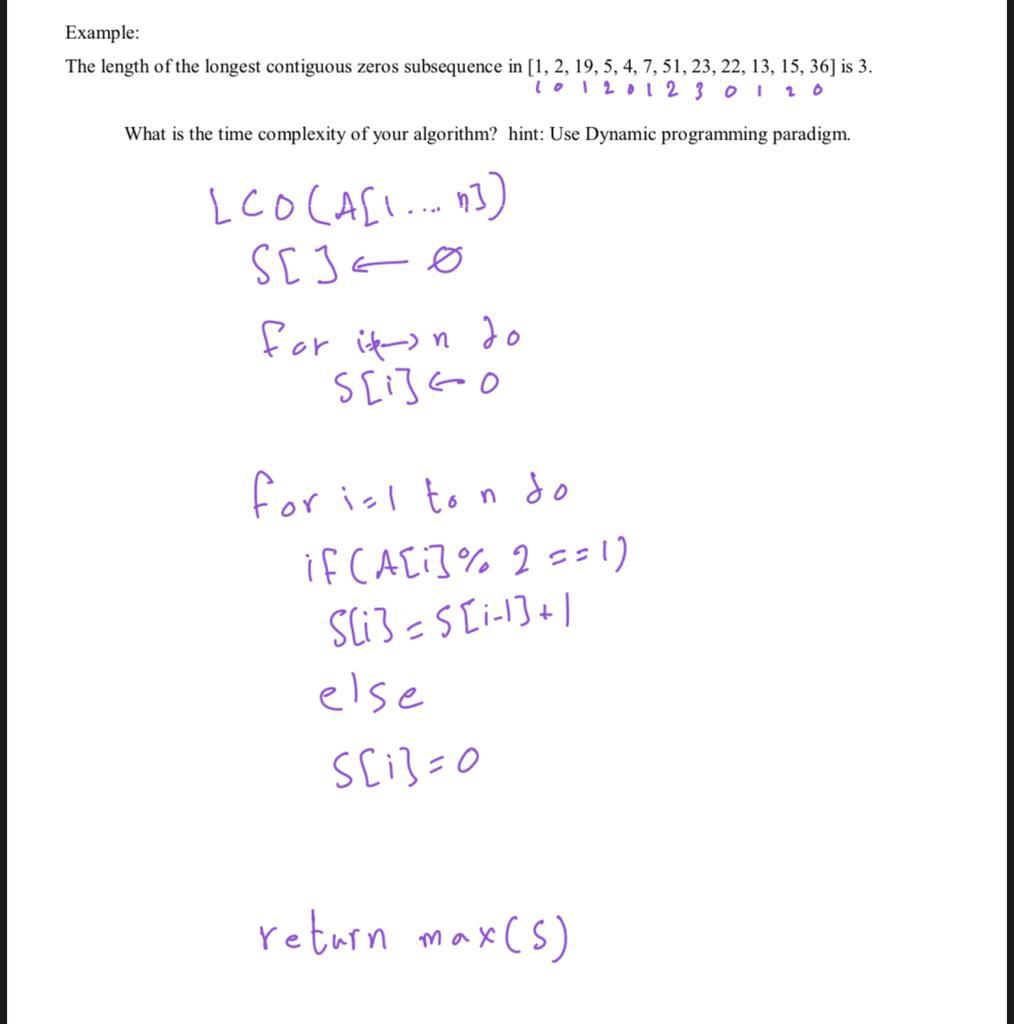 Example:
The length of the longest contiguous zeros subsequence in [1, 2, 19, 5, 4, 7, 51, 23, 22, 13, 15, 36] is 3.
1 0 1 2 0 1 2 3 0 1 2 0
What is the time complexity of your algorithm? hint: Use Dynamic programming paradigm.
LCO(A[1 .... n])
S[ ] ← ∅
for i → n do
S[i] ← 0
for i=1 to n do
if (A[i] % 2 == 1)
S[i] = S[i-1] + 1
else
S[i] = 0
return max(S)